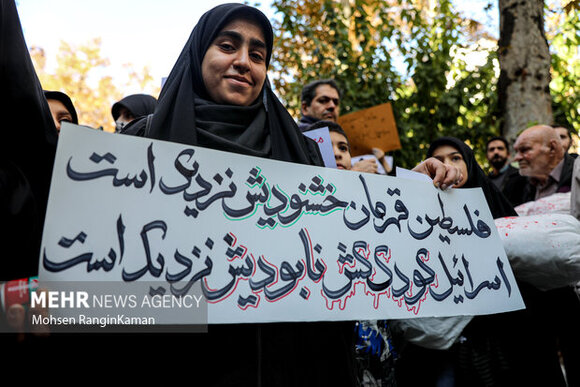 فلسطین قهرمان خشنودیش نزدیک است
اسرائیل کودک کش نابودیش نزدیک است
MEHR NEWS AGENCY
Mohsen RanginKaman